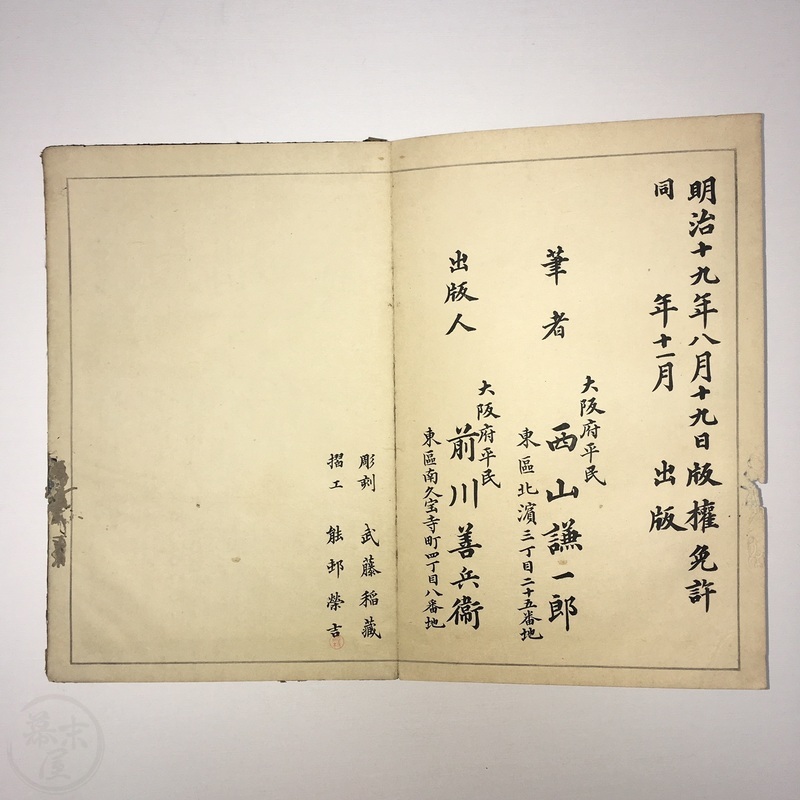 明治十九年八月十九日版權免許
同年十一月出版
筆者
大阪府平民
西山謙一郎
東區北濱三丁目二十五番地
出版人
大阪府平民
前川善兵衞
東區南久宝寺町四丁目八番地
彫刻 武藤稲藏
摺工 熊邨榮吉
幕末屋